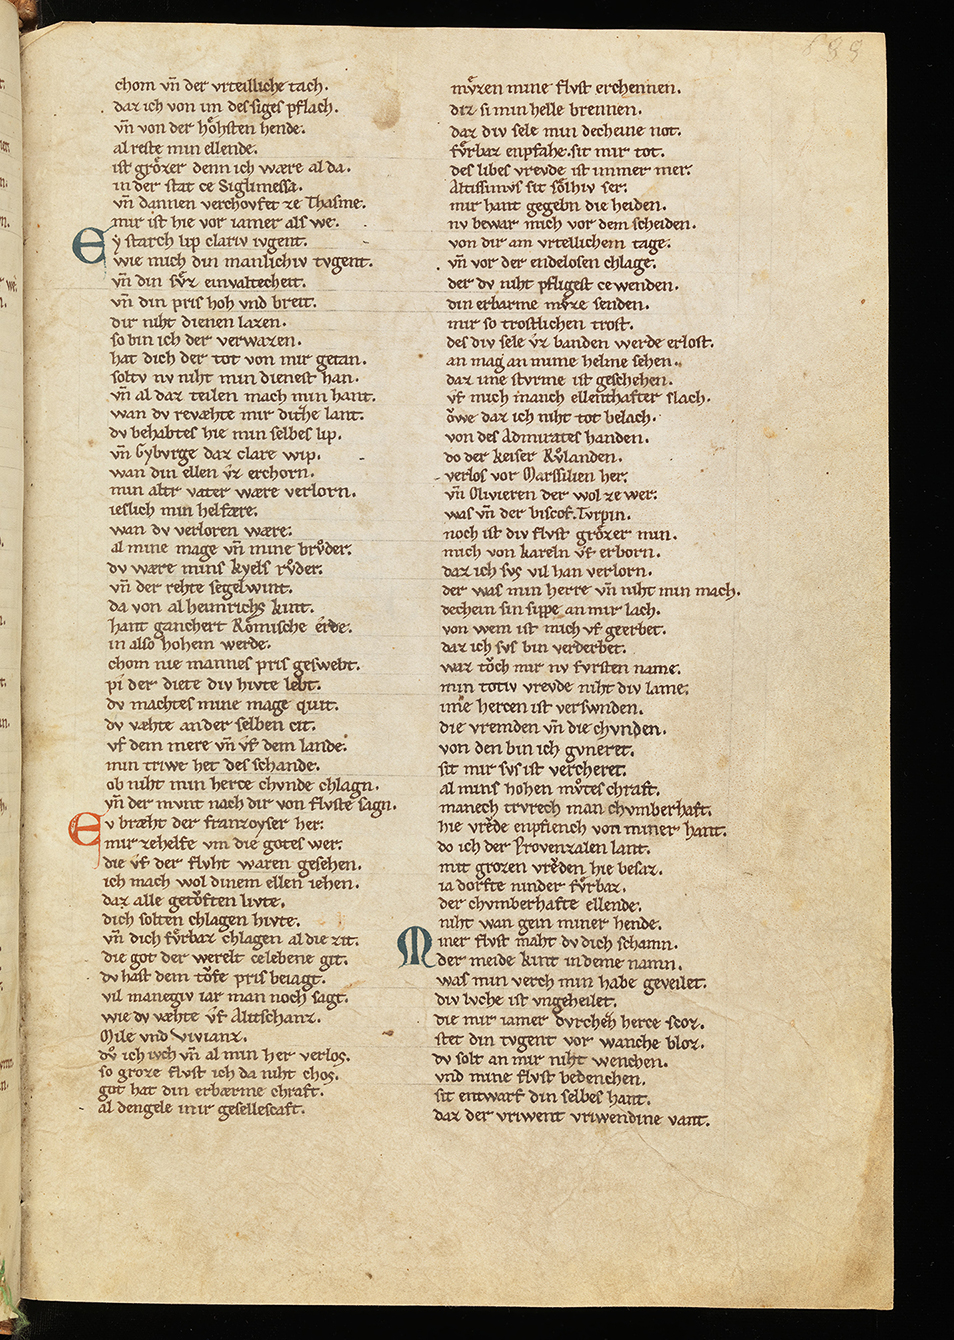 chom vn̄ der vrteilliche tach.
daz ich von im des siges pflach.
vn̄ von der hoͤhsten hende.
al reste min ellende.
ist groͤzer denn ich wære al da.
in der stat ce Siglimessa.
vn̄ dannen verchovfet ze Thasme.
mir ist hie vor iamer als we.
Ey starch lip clariv ivgent.
wie mich din manlichiv tvgent.
vn̄ din svͤz einvaltecheit.
vn̄ din pris hoh vnd breit.
dir niht dienen lazen.
so bin ich der verwazen.
hat dich der tot von mir getan.
soltv nv niht min dienest han.
vn̄ al daz teilen mach min hant.
wan dv revæhte mir ditze lant.
dv behabtes hie min selbes lip.
vn̄ Gybvrge daz clare wip.
wan din ellen vz erchorn.
min alter vater wære verlorn.
ieslich min helfære.
wan dv verloren wære.
al mine mage vn̄ mine brvͦder.
dv wære mins kyels rvͦder.
vn̄ der rehte segelwint.
da von al heinrichs kint.
hant ganchert Roͤmische erde.
in also hohem werde.
chom nie mannes pris geswebt.
pi der diete div hivte lebt.
dv machtes mine mage quit.
dv væhte an der selben cit.
vf dem mere vn̄ vf dem lande.
min triwe het des schande.
ob niht min herce chvnde chlagn.
vn̄ der mvnt nach dir von flvste sagn.
Ev bræht der franzoyser her.
mir zehelfe vm die gotes wer.
die vf der flvht waren gesehen.
ich mach wol dinem ellen iehen.
daz alle getoͮften livte.
dich solten chlagen hivte.
vn̄ dich fvͤrbaz chlagen al die zit.
die got der werelt celebene git.
dv hast dem toͮfe pris beiagt.
vil manegiv iar man noch sagt.
wie dv væhte vf Alitschanz.
Mile vnd Vivianz.
dvͦ ich ivch vn̄ al min her verlos.
so groze flvst ich da niht chos.
got hat din erbærme chraft.
al dengele mir gesellescaft.
mvͤzen mine flvst erchennen.
diz si min helle brennen.
daz div sele min decheine not.
fvͤrbaz enpfahe. sit mir tot.
des libes vrevde ist immer mer.
Altissimvs sit soͤlhiv ser.
mir hant gegebn die heiden.
nv bewar mich vor dem scheiden.
von dir am vrteilichem tage.
vn̄ vor der endelosen chlage.
der dv niht pfligest ce wenden.
din erbarme mvͤze senden.
mir so trostlichen trost.
des div sele vz banden werde erlost.
an mag an mime helme sehen.
daz ime stvrme ist geschehen.
vf mich manch ellenthafter slach.
oͮwe daz ich niht tot belach.
von des Admirates handen.
do der keiser Rvͦlanden.
verlos vor Marssilien her.
vn̄ Olivieren der wol ze wer.
was vn̄ der biscof. Tvrpin.
noch ist div flvst groͤzer min.
mich von kareln vf erborn.
daz ich svs vil han verlorn.
der was min herre vn̄ niht min mach.
dechein sin sippe an mir lach.
von wem ist mich vf geerbet.
daz ich svs bin verderbet.
waz toͮch mir nv fvrsten name.
min totiv vrevde niht div lame.
ime hercen ist verswnden.
die vremden vn̄ die chvnden.
von den bin ich gvneret.
sit mir svs ist vercheret.
al mins hohen mvͦtes chraft.
manech trvrech man chvmberhaft.
hie vrevde enpfiench von miner hant.
do ich der Provenzalen lant.
mit grozen vrevden hie besaz.
ia dorfte ninder fvͤrbaz.
der chvmberhafte ellende.
niht wan gein miner hende.
Miner flvst maht dv dich schamn.
der meide kint in deme namn.
was min verch min habe geveilet.
div lvche ist vngeheilet.
die mir iamer dvrchen herce scoz.
stet din tvgent vor wanche bloz.
dv solt an mir niht wenchen.
vnd mine flvst bedenchen.
sit entwarf din selbes hant.
daz der vriwent vriwendine vant.